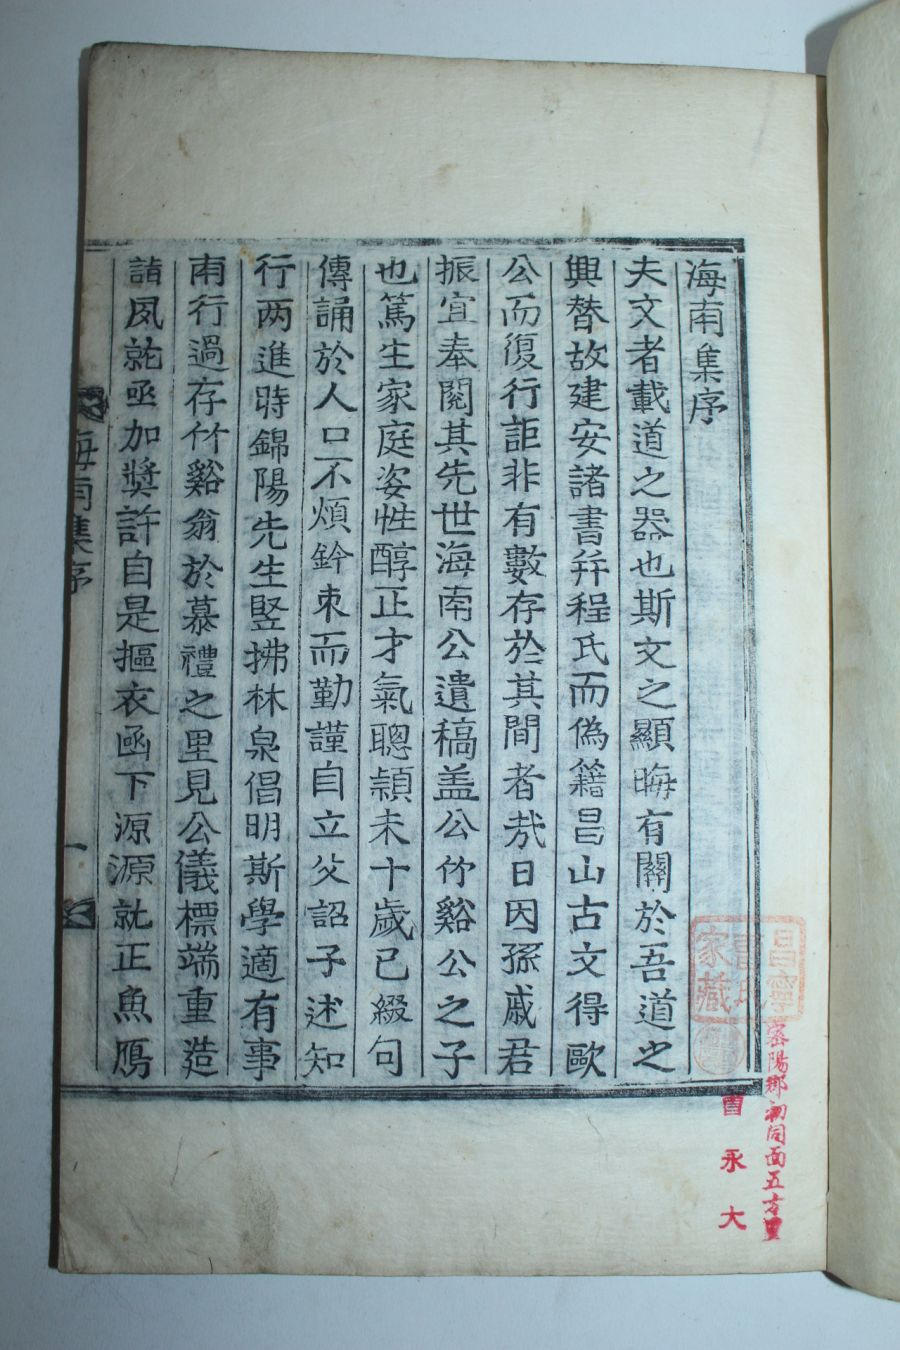 海南集序
夫文者載道之器也斯文之顯晦有關於吾道之
興替故建安諸書幷程氏而僞籍昌山古文得歐
公而復行詎非有數存於其間者哉日因孫戚君
振宜奉閱其先世海南公遺稿盖公竹谿公之子
也篤生家庭姿性醇正才氣聰頴未十歲已綴句
傳誦於人口不煩鈐束而勤謹自立父詔子述知
行两進時錦陽先生竪拂林泉倡明斯學適有事
南行過存竹谿翁於慕禮之里見公儀標端重造
詣夙就亟加奬許自是摳衣凾下源源就正魚鴈
海南集序
一
昌寧曺氏家藏
密陽郡初同面五方里
曺永大